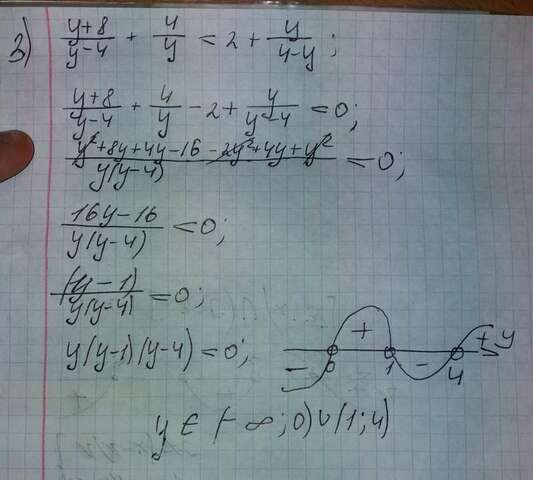 3) \frac{y+8}{y-4} + \frac{4}{y} < 2 + \frac{y}{4-y};
\frac{y+8}{y-4} + \frac{4}{y} - 2 + \frac{y}{y-4} < 0;
\frac{y²+8y+4y-16-2y²+4y+y²}{y(y-4)} < 0;
\frac{16y-16}{y(y-4)} < 0;
\frac{(y-1)}{y(y-4)} < 0;
y(y-1)(y-4) < 0;
- + - + y
0 1 4
y ∈ (-∞;0)∪(1;4)